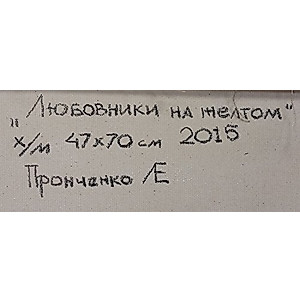 „Любовники на желтом“
х/м 47х70 см 2015
Пронченко ЛЕ